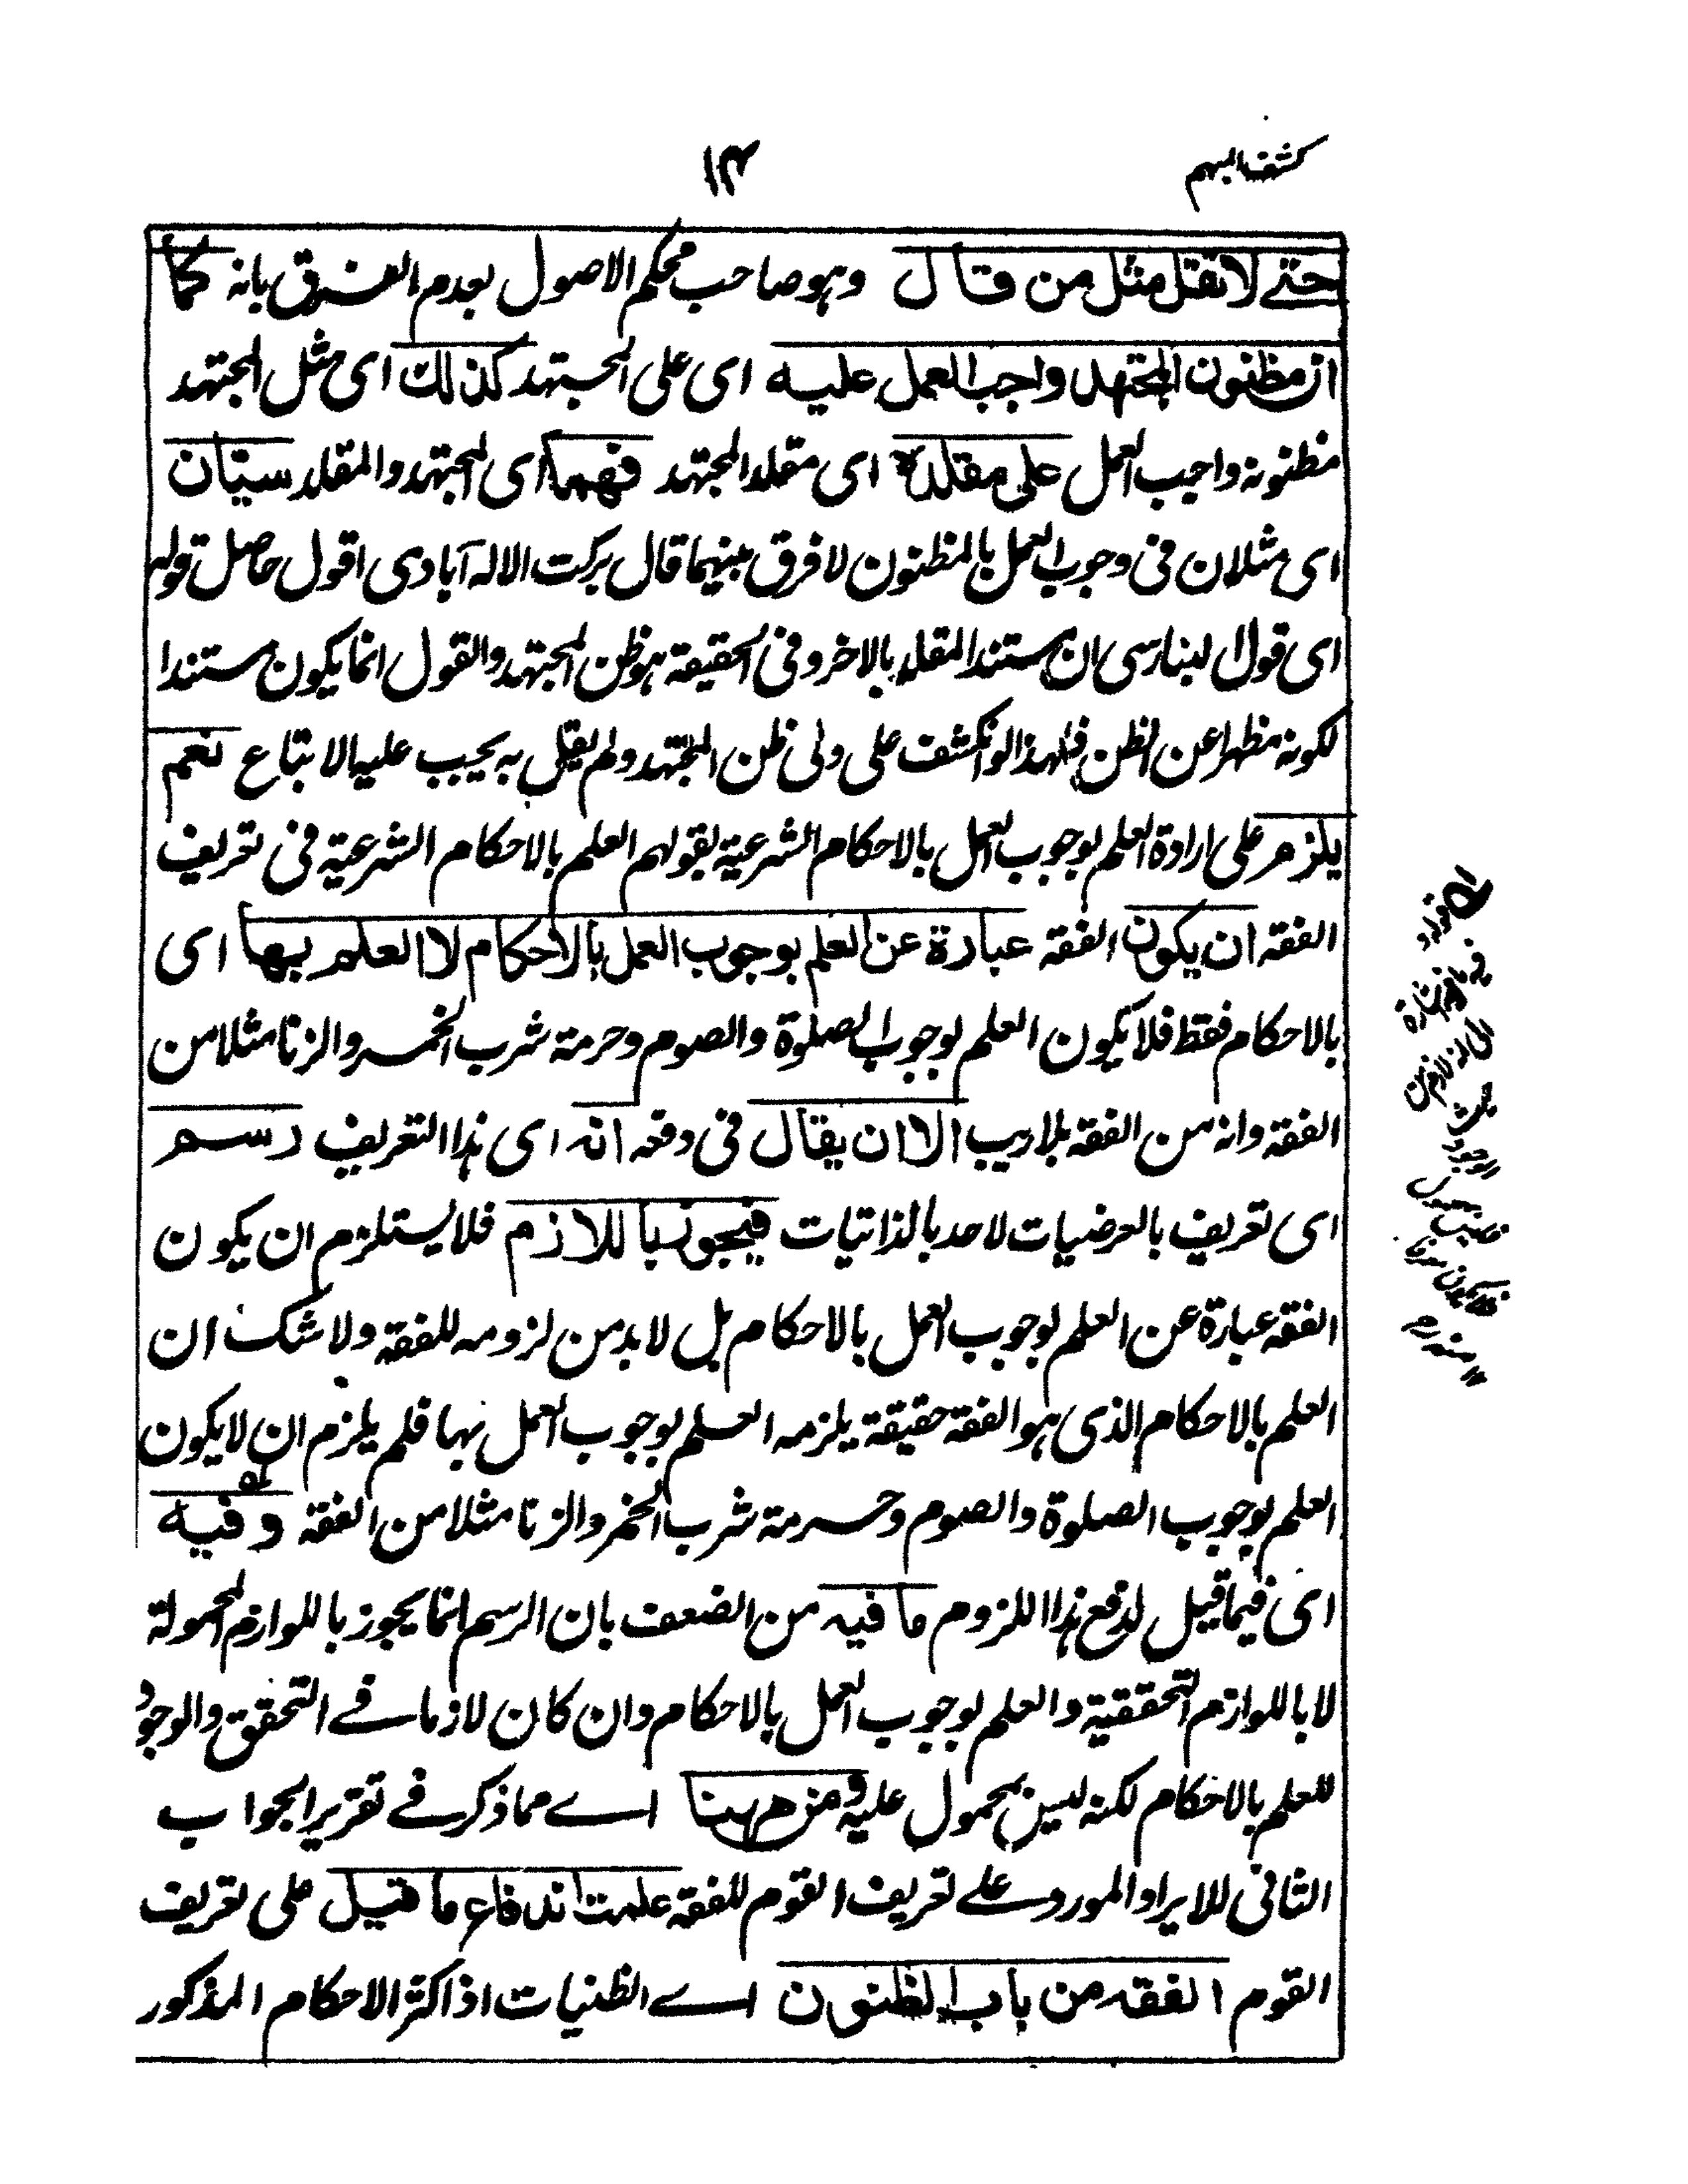 كشف المبهم
١٤
حتے لا تقل مثل من قال وہو صاحب محكم الاصول بعدم الفرق بانہ كما
ان مظنون المجتهد واجب العمل عليه اى على المجتہد كذلك اى مثل المجتہد
مظنونہ واجب العمل على مقلده اى مقلد المجتہد فهما اى المجتہد والمقلد سيّان
اى مثلان فى وجوب العمل بالمظنون لا فرق بينہما قال بركت الالہ آبادى اقول حاصل قولہ
اى قول البنارسى ان مستند المقلد بالاخر وفى الحقيقة ہو ظن المجتہد والقول انما يكون مستندا
لكونہ مظہرا عن الظن فلہذا لو انكشف على ولى ظن المجتہد ولم يقل بہ يجب عليہ الاتباع نعم
يلزم على ارادة العلم بوجوب العمل بالاحكام الشرعية بقولہم العلم بالاحكام الشرعية فى تعريف
الفقہ ان يكون الفقہ عبارة عن العلم بوجوب العمل بالاحكام لا العلم بها اى
بالاحكام فقط فلا يكون العلم بوجوب الصلوة والصوم وحرمة شرب الخمر والزنا مثلا من
الفقہ وانہ من الفقہ بلا ريب الا ان يقال فى دفعہ انہ اى ہذا التعريف رسم
اى تعريف بالعرضيات لا حد بالذاتيات فيجوز باللازم فلا يستلزم ان يكون
الفقہ عبارة عن العلم بوجوب العمل بالاحكام بل لا بد من لزومہ للفقہ ولا شك ان
العلم بالاحكام الذى ہو الفقہ حقيقة يلزمہ العلم بوجوب العمل بہا فلم يلزم ان لا يكون
العلم بوجوب الصلوة والصوم وحرمة شرب الخمر والزنا مثلا من الفقہ و فيه
اى فيما قيل لدفع ہذا اللزوم ما فيہ من الضعف بان الرسم انما يجوز باللوازم المحمولة
لا باللوازم التحققية والعلم بوجوب العمل بالاحكام وان كان لازما فے التحقق والوجود
للعلم بالاحكام لكنہ ليس بمحمول عليہ ومن ههنا اے مما ذكر فے تقرير الجواب
الثانى للايراد المورد علے تعريف القوم للفقہ علمت اندفاع ما قيل على تعريف
القوم الفقہ من باب الظنون اے الظنيات اذ اكثر الاحكام المذكور
قولہ
فيہ اشارة
الى